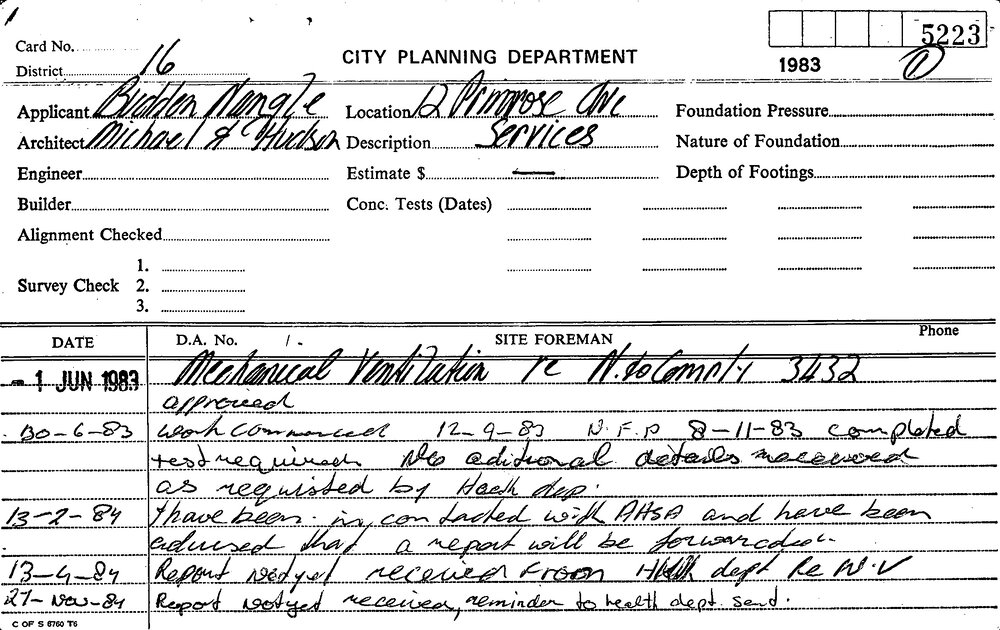 5223
Card No.
CITY PLANNING DEPARTMENT
1983 1
District 16
Applicant Budden Nangle Location 12 Primrose Ave Foundation Pressure
Architect Michael & Hudson Description Services Nature of Foundation
Engineer Estimate $ — Depth of Footings
Builder Conc. Tests (Dates)
Alignment Checked
1.
Survey Check 2.
3.
DATE D.A. No. SITE FOREMAN Phone
- 1 JUN 1983 Mechanical Ventilation re N. to Comply 3432
approved
30-6-83 work commenced 12-9-83 N.F.P 8-11-83 completed
test required No aditional details received
as requisted by Heath dep.
13-2-84 I have been in contacted with AHSA and have been
advised that a report will be forwarded.
13-4-84 Report Notyet received from Health dept Re M.V
27-Nov-84 Report Notyet received, reminder to health dept. sent.
C OF S 6760 T6